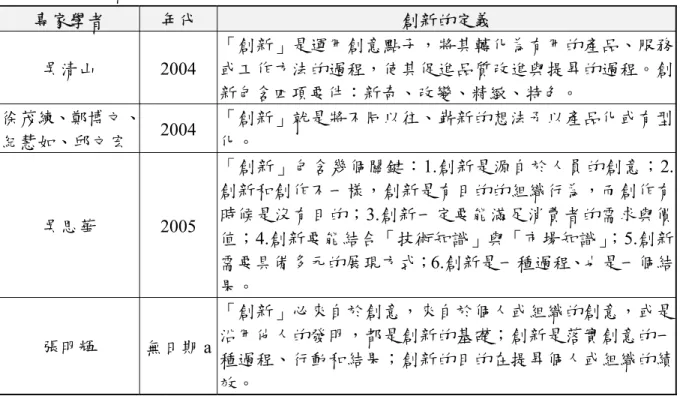 專家學者 年代 創新的定義
吳清山 2004 「創新」是運用創意點子，將其轉化為有用的產品、服務
或工作方法的過程，使其促進品質改進與提昇的過程。創
新包含四項要件：新奇、改變、精緻、特色。
徐茂練、鄭博文、
包慧如、邱文宏 2004 「創新」就是將不同以往、嶄新的想法予以產品化或有型
化。
吳思華 2005 「創新」包含幾個關鍵：1.創新是源自於人員的創意；2.
創新和創作不一樣，創新是有目的的組織行為，而創作有
時候是沒有目的；3.創新一定要能滿足消費者的需求與價
值；4.創新要能結合「技術知識」與「市場知識」；5.創新
需要具備多元的展現方式；6.創新是一種過程、也是一個結
果。
張明輝 無日期 a 「創新」必來自於創意，來自於個人或組織的創意，或是
沿用他人的發明，都是創新的基礎；創新是落實創意的一
種過程、行動和結果；創新的目的在提昇個人或組織的績
效。